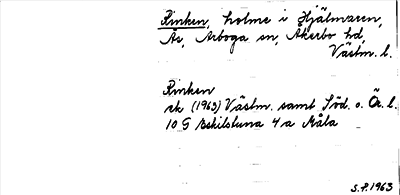 Rinken, holme i Hjälmaren,
Ar, Arboga sn, Åkerbo hd,
Västm. l.
Rinken
rk (1963) Västm. samt Söd. o. Ör. l.
10 G Eskilstuna 4 a Måla
S.P. 1963